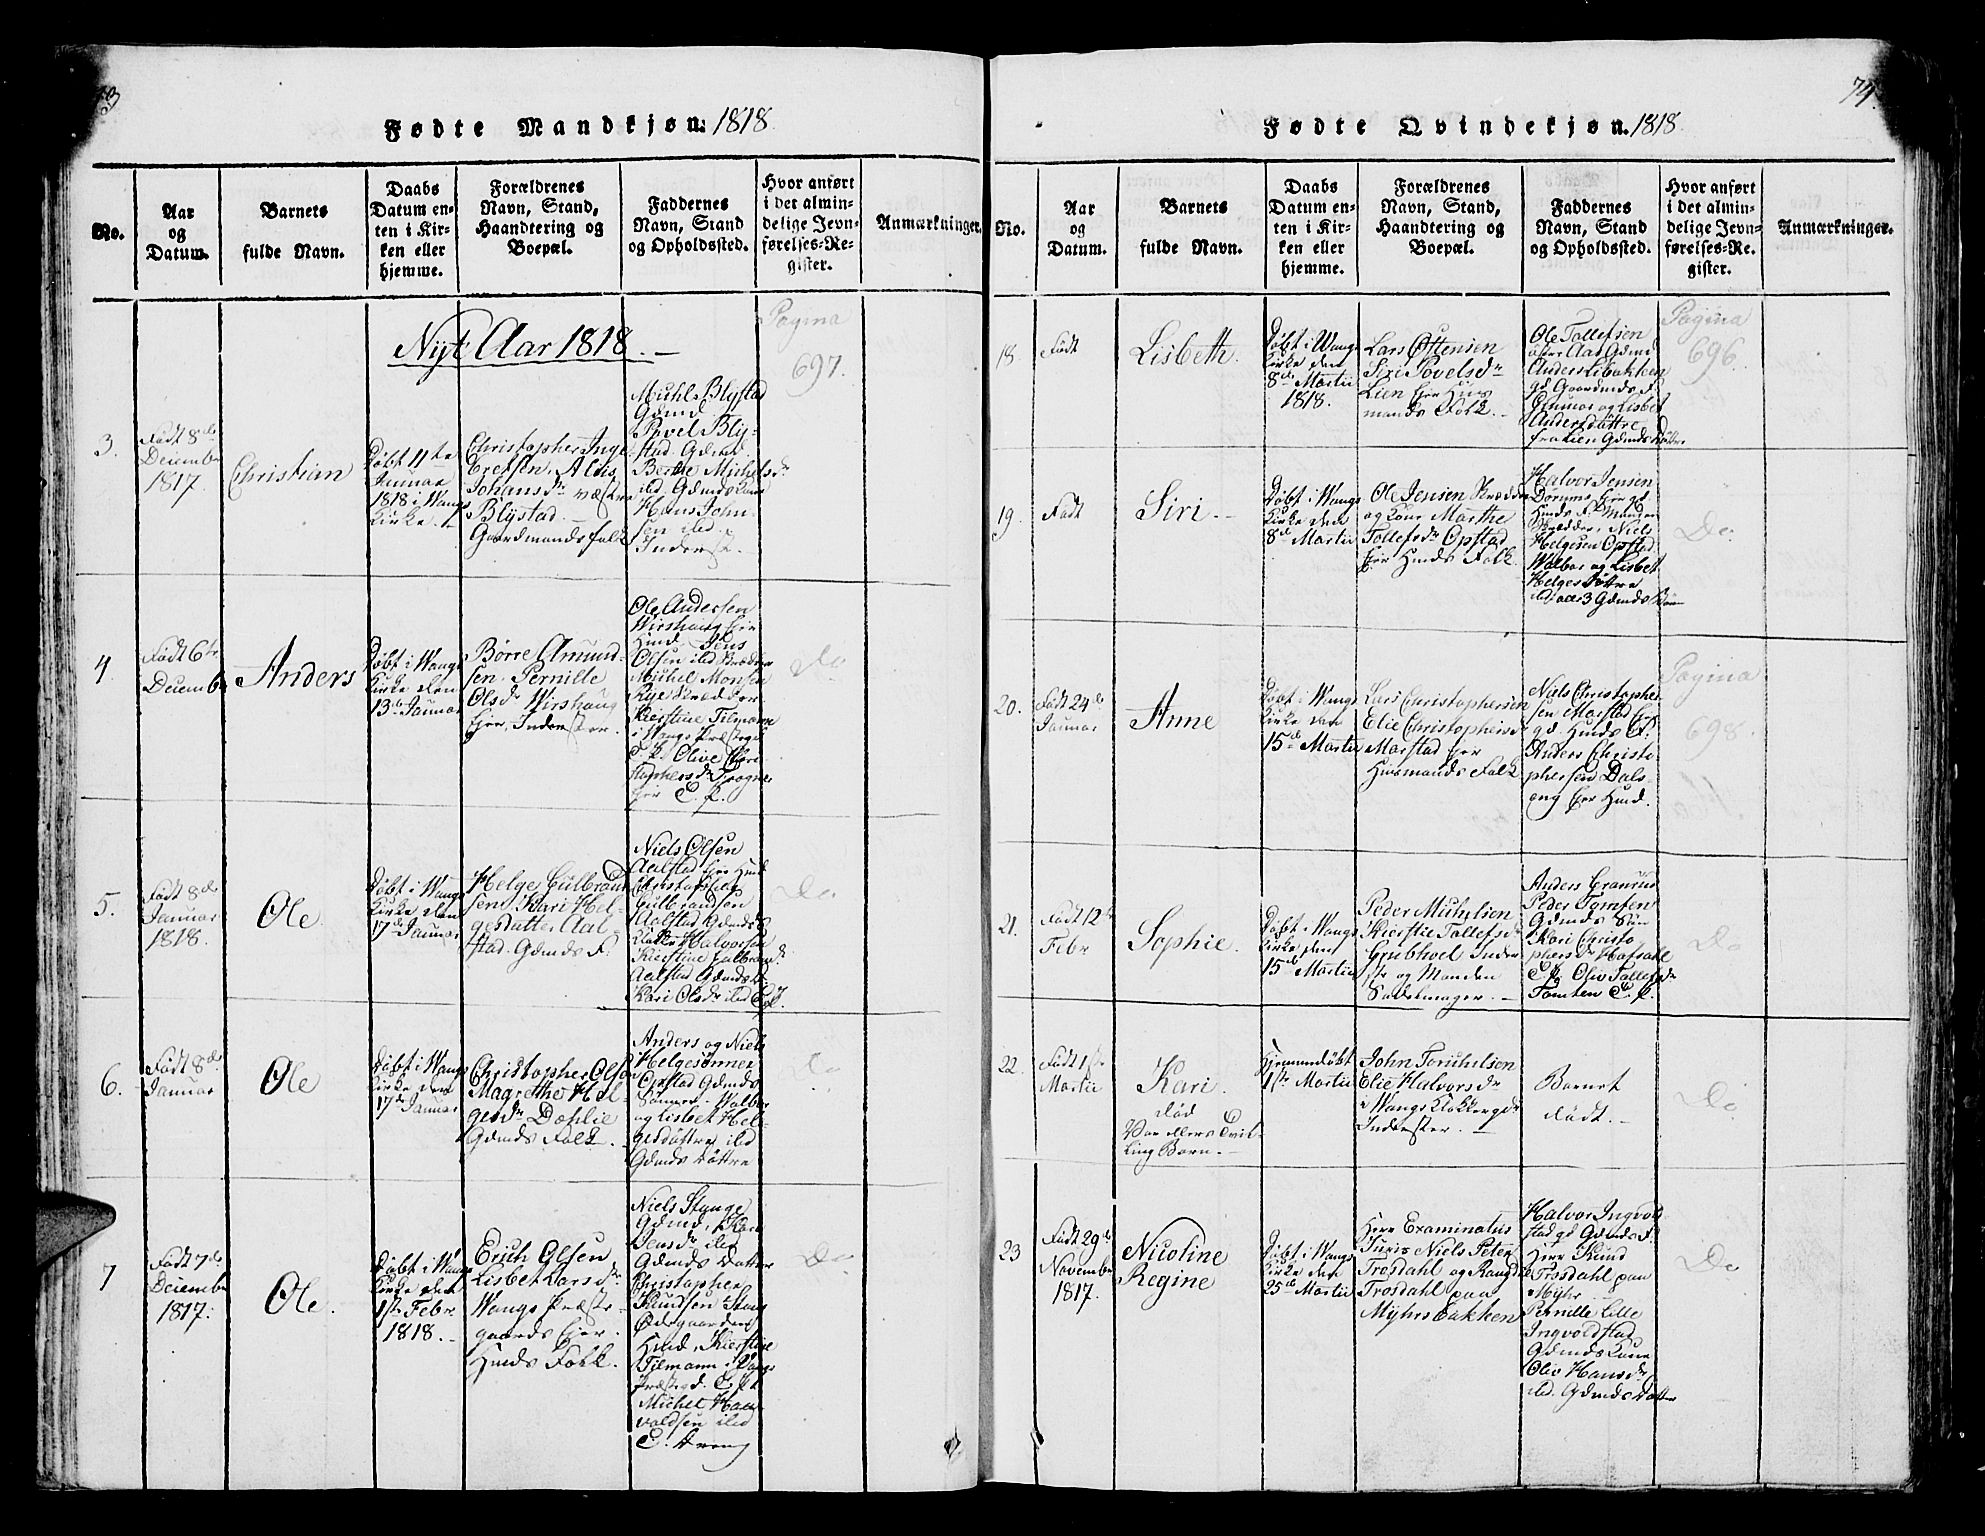 Fødte Mandkjøn: 1818.
No.
Aar
og
Datum.
Barnets
fulde Navn.
Daabs
Datum en-
ten i Kir-
ken eller
hjemme.
Forældrenes
Navn, Stand,
Haandtering og
Boepæl.
Faddernes
Navn, Stand
og Opholdssted.
Hvor anført
i det almin-
delige Jevn-
førelses-Re-
gister.
Anmærkninger.
Nyt Aar 1818.
Pagina
697.
3.
Født 8de
Decembr
1817.
Christian
Døbt 11te
Januar
1818 i Wangs
Kirke.
Christopher
Johansdr
Blystad
Gaardmandsfolk
Blystad
Gdmd
Povel Bly-
stad Gdmd
Berthe Michelsdr
ibd Gdmds Kone
Hans John-
sen ibd
Inderst.
4.
Født 6te
Decembr
Anders
Døbt i Wangs
Kirke den
13de Januar
Børre Amund-
sen. Pernille
Olsdr Wirshaug
Eier, Inderster.
Ole Andersen
Wirshaug Eier
Hmd. Jens
Olsen ibd Skrædder
Michel Monsen
Rye Skrædder
Kierstine Tilmann
i Wangs Præstegd
E. P. Olive Chri-
stophersdr
Eier E. P.
Do
5.
Født 8de
Januar
1818.
Ole
Døbt i Wangs
Kirke den
17de Januar
Helge Gulbrand-
sen. Kari Hel-
gesdatter Aal-
stad. Gdmds F.
Niels Olsen
Aalstad Eier Hmd
Christopher
Gulbrandsen
Aalstad Gdmds S.
Halvorsen
Kierstine Gulbrandsdr
Aalstad Gdmds D.
Kari Olsdr ibd E. P.
Do
6.
Født 8de
Januar
Ole
Døbt i Wangs
Kirke den
17de Januar
Christopher Olsen
Magrethe Hel-
gesdr Dahlie
Gdmds Folk.
Anders og Niels
Helgesønner
Opstad Gdmds
Sønner. Walbor
og Lisbet Hel-
gesdøttre ibd
Gdmds Døttre
Do
7
Født 7de
Decembr
1817.
Ole.
Døbt i Wangs
Kirke den
1ste Febr
1818.
Erich Olsen
Lisbet Larsdr
Wangs Præste-
gaards Eier.
Hmds Folk.
Niels Stange
Gdmd, Kari
Jensdr ibd
Gdmds Datter
Christopher
Knudsen Stang
Ødegaarden
Hmd, Kierstine
Tilmann i Wangs
Præstegd. E. P.
Michel Haa-
voldsen ibd
E. Dreng
Do
74.
Fødte Qvindekjøn. 1818.
No.
Aar
og
Datum.
Barnets
fulde Navn.
Daabs
Datum en-
ten i Kir-
ken eller
hjemme.
Forældrenes
Navn, Stand,
Haandtering og
Boepæl.
Faddernes
Navn, Stand
og Opholdssted.
Hvor anført
i det almin-
delige Jevn-
førelses-Re-
gister.
Anmærkninger.
18.
Født
Lisbeth.
Døbt i Wangs
Kirke den
8de Martii
1818.
Lars Ostensen
Siri Povelsdr
Lien Eier Huus-
mands Folk.
Ole Tollefsen
Aas Gdmd
Anders Libakken
gd. Gaardmds F.
Gunnor og Lisbet
Andersdøttre
fra Lien Gdmds Døttre
Pagina
696.
19.
Født
Siri.
Døbt i Wangs
Kirke den
8de Martii
Ole Jensen Skrædder
og Kone Marthe
Tollefsdr Opstad
Eier Hmds Folk.
Halvor Jensen
Dorums Eier gd
Hmds F. Manden
Skrædder, Niels
Helgesen Opstad
Walbor og Lisbet
Helges Døttre
ibd alle 3 Gdmds Børn
Do.
20.
Født 24de
Januar
Anne
Døbt i Wangs
Kirke den
15de Martii
Lars Christophersen
Elie Christophersdr
Marstad Eier
Huusmands Folk
Niels Christopher-
sen Marstad Eier
gd. Hmds F.
Anders Christo-
phersen Dals-
eng Eier Hmd.
Pagina
698.
21.
Født 12te
Febr
Sophie.
Døbt i Wangs
Kirke den
15de Martii
Peder Michelsen
Kierstie Tollefsdr
Grubhoel Inder-
str og Manden
Sadelmager.
Anders Granrud
Peder Tomsen
Gdmds Søn
Kari Christo-
phersdr Hafsahl
E. P. Oliv Tollefsdr
Tomten E. P.
Do
22.
Født 1ste
Martii
Kari.
død
Var ellers Tvil-
ling Barn.
Hjemmedøbt
1ste Martii
John Torichelsen
Elie Halvorsdr
i Wangs Klokkergd
Inderster.
Barnet
dødt.
Do
23
Født 29de
Novembr
1817.
Nicoline
Regine
Døbt i Wangs
Kirke den
25de Martii
Herr Examinatus
Juris Niels Peter
Trosdahl og Rangdi
Trosdahl paa
Myhrs Eakken
Halvor Ingvold-
stad gd Gdmds F.
Herr Knud
Trosdahl paa
Myhr
Pernille Lille
Ingvoldstad
Gdmds Kone
Oliv Hansdr
ibd. Gdmds Datter
Do